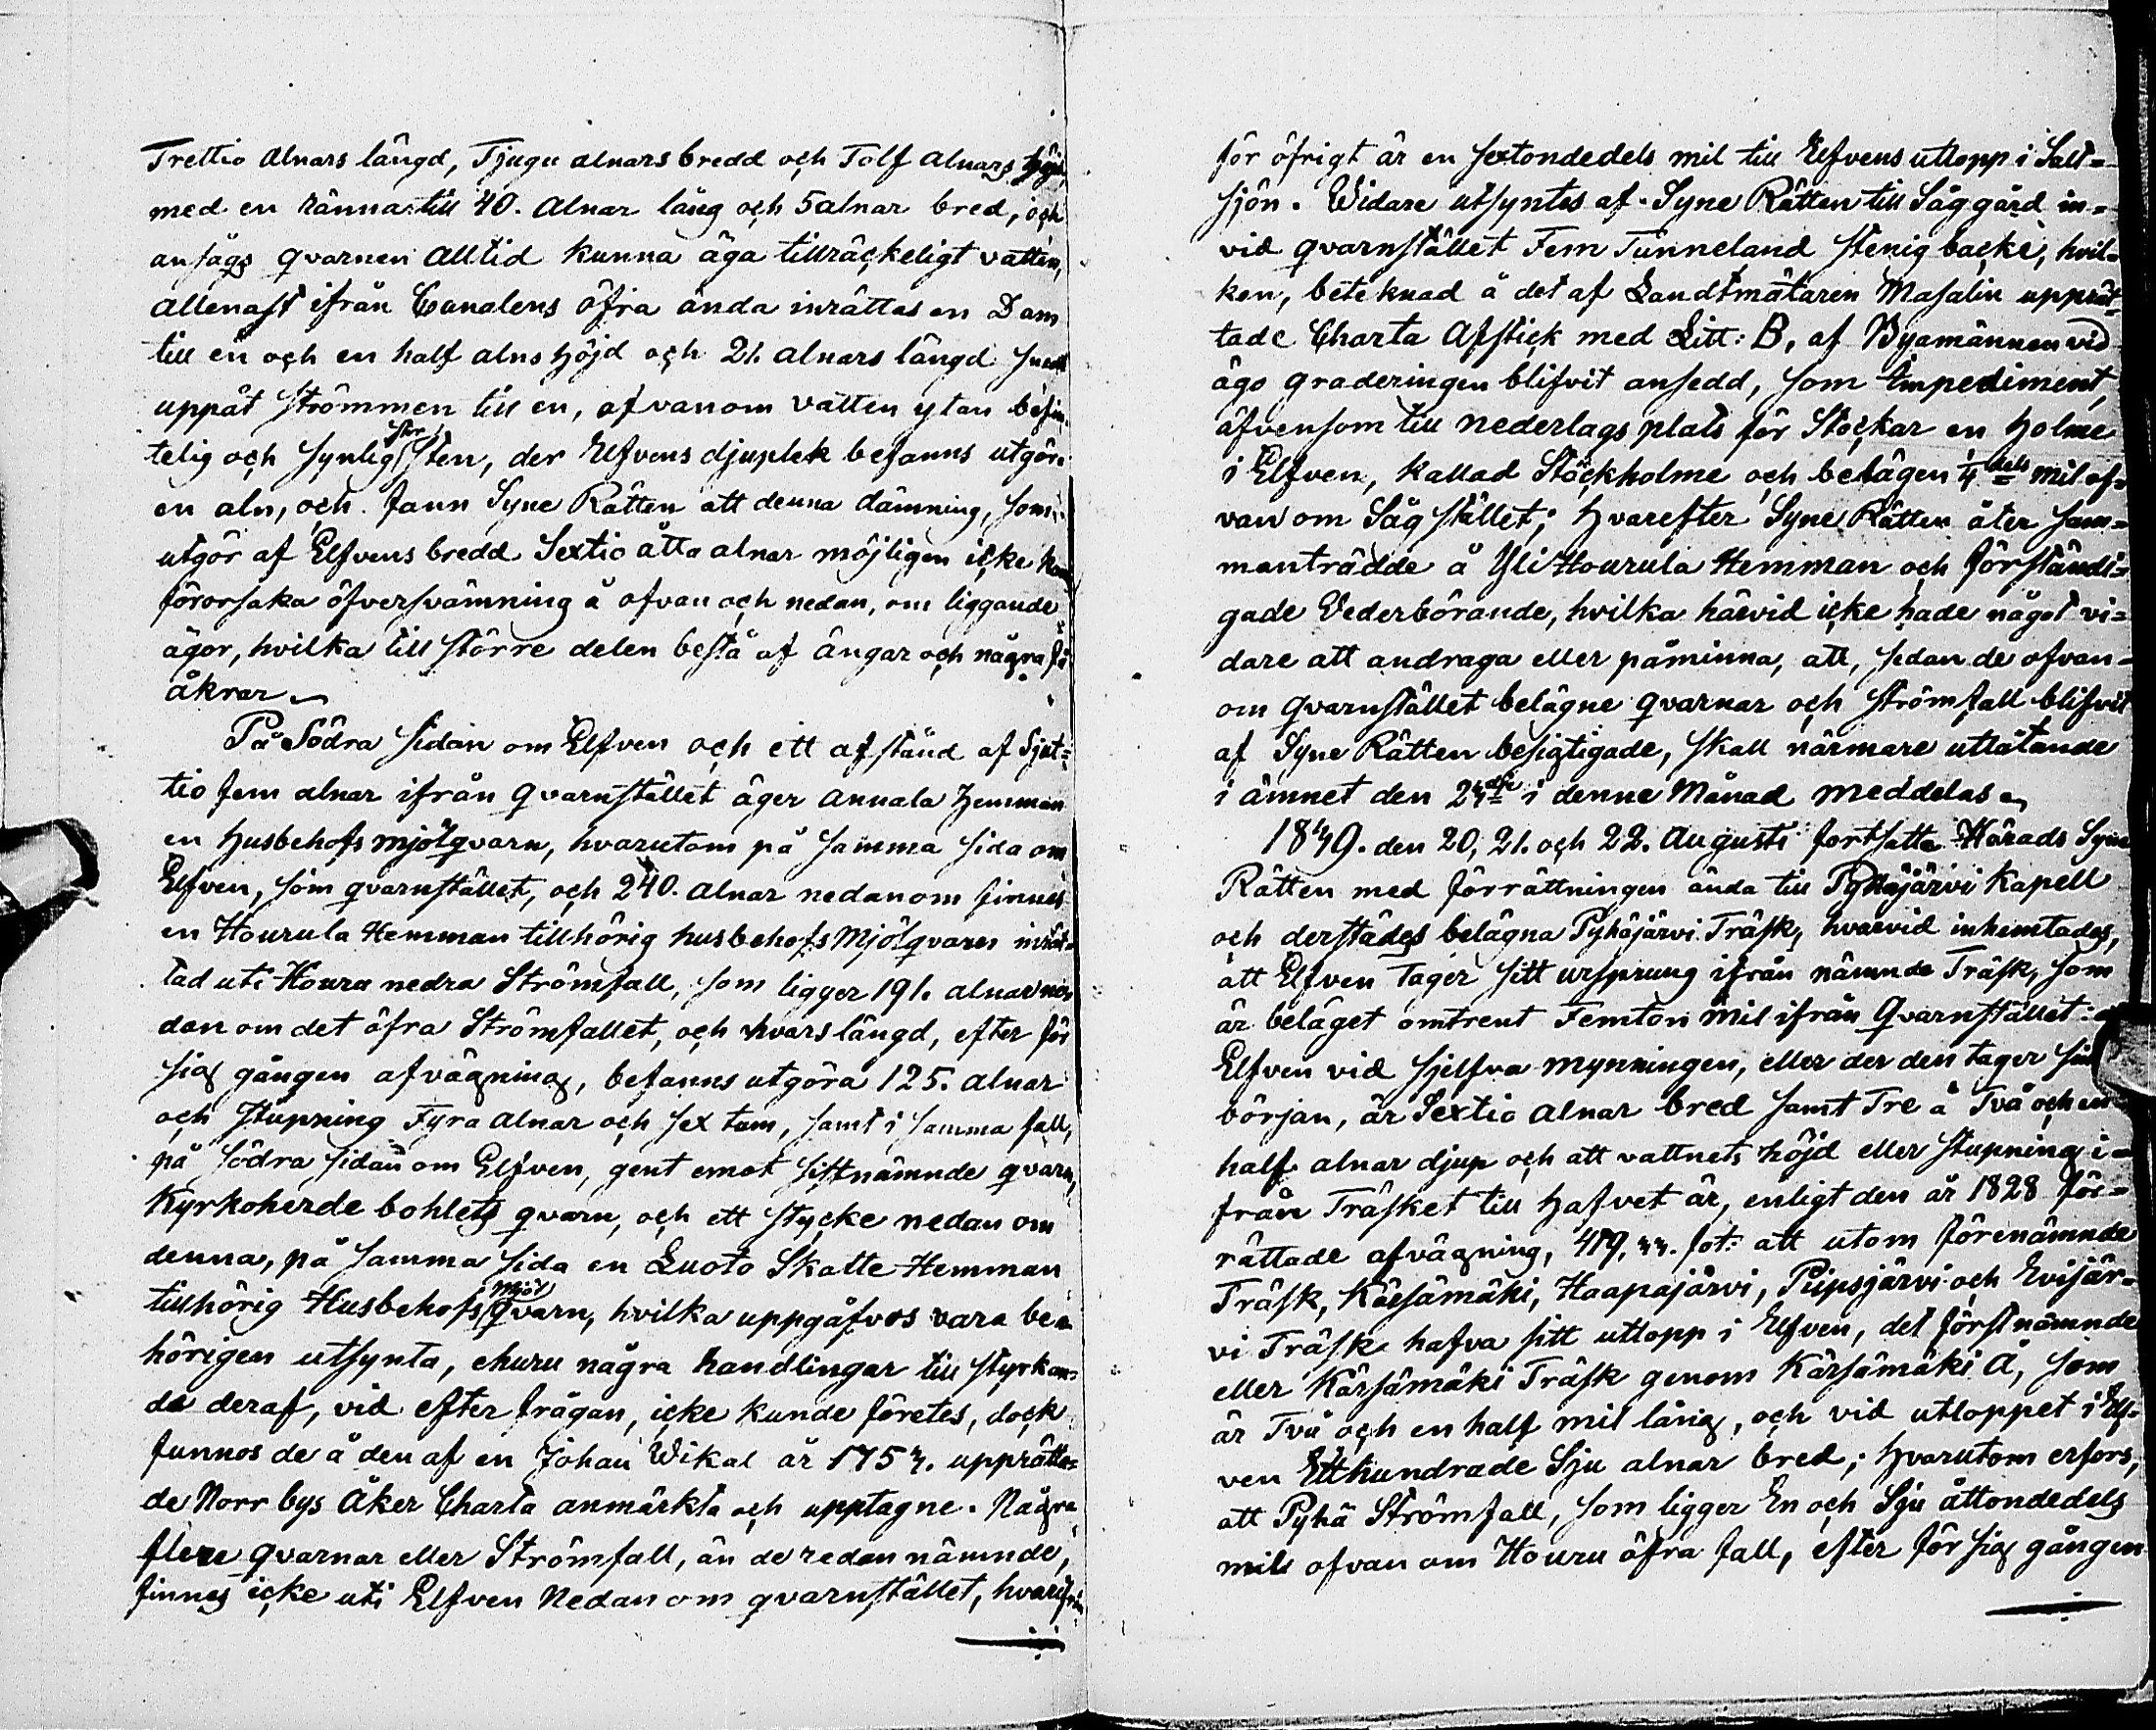 Trettio alnars längd, Tjugu alnars bredd och Tolf alnars höjd,
med en ränna till 40. alnar lång och 5 alnar bred, och
ansågs qvarnen alltid kunna äga tillräckeligt vatten,
allenast ifrån Canalens öfra ända inrättas en Dam
till en och en half alns höjd och 21. alnars längd snedt
uppåt strömmen till en, ofvanom vatten ytan befin-
telig och synlig stor sten, der Elfvens djuplek befanns utgöra
en aln, och fann Syne Rätten att denna dämning, som
utgör af Elfvens bredd Sextio åtta alnar möjligen icke kan
förorsaka öfversvämning å ofvan och nedan, om liggande
ägor, hvilka till större delen bestå af ängar och några få
åkrar.
På Södra sidan om Elfven och ett afstånd af Sjut-
tio fem alnar ifrån qvarnstället äger Annala hemman
en husbehofs mjölqvarn, hvarutom på samma sida om
Elfven, som qvarnstället, och 240. alnar nedanom finnes
en Hourula Hemman tillhörig husbehofs Mjölqvarn inrät-
tad uti Houru nedra Strömfall, som ligger 191. alnar ne-
dan om det öfra Strömfallet, och hvars längd, efter för
sig gången afvägning, befanns utgöra 125. alnar
och stupning Fyra alnar och sex tum, samt i samma fall,
på södra sidan om Elfven, gent emot sistnämnde qvarn,
Kyrkoherde bohlets qvarn, och ett stycke nedan om
denna, på samma sida en Luoto Skatte Hemman
tillhörig Husbehofs Mjöl qvarn, hvilka uppgåfvos vara be-
hörigen utsynta, ehuru några handlingar till styrkan-
de deraf, vid efter frågan, icke kunde företes, dock
funnos de å den af en Johan Wikal år 1754. upprätta-
de Norr bys Åker Charta anmärkta och upptagne. Några
flere qvarnar eller Strömfall, än de redan nämnde,
finnes icke uti Elfven Nedan om qvarnstället, hvarifrån
för öfrigt är en sextondedels mil till Elfvens utlopp i Salt-
sjön. Widare utsyntes af Syne Rätten till Såg gård in-
vid qvarnstället Fem Tunneland stenig backe, hvil-
ken, beteknad å det af Landtmätaren Masalin upprät-
tade Charta Afstick med Litt: B, af Byamännen vid
ägo graderingen blifvit ansedd, som Impediment,
äfvensom till nederlags plats för Stockar en holme
i Elfven, kallad Stöckholme och belägen 1/4 dels mil of-
van om Såg stället; hvarefter Syne Rätten åter sam-
manträdde å Yli Hourula Hemman och förständi-
gade Vederbörande, hvilka härvid icke hade något vi-
dare att andraga eller påminna, att, sedan de ofvan-
om qvarnstället belägne qvarnar och strömfall blifvit
af Syne Rätten besigtigade, skall närmare utlåtande
i ämnet den 24de i denne Månad meddelas.
1849. den 20, 21. och 22. Augusti fortsatte Härads Syne
Rätten med förrättningen ända till Pyhäjärvi Kapell
och derstädes belägna Pyhäjärvi Träsk, hvarvid inhemtades,
att Elfven tager sitt ursprung ifrån nämnde Träsk, som
är beläget omtrent Femton mil ifrån Qvarnstället:
Elfven vid sjelfva mynningen, eller der den tager sin
början, är Sextio alnar bred samt Tre à Två och en
half alnar djup och att vattnets höjd eller stupning i-
från Träsket till hafvet är, enligt den år 1828 för-
rättade afvägning, 419,44. fot: att utom förenämnde
Träsk, Kärsämäki, Haapajärvi, Piipsjärvi och Evijär-
vi Träsk hafva sitt utlopp i Elfven, det förstnämnde
eller Kärsämäki Träsk genom Kärsämäki Å, som
är Två och en half mil lång, och vid utloppet i Elf-
ven Etthundrade Sju alnar bred; hvarutom erfors,
att Pyhä Strömfall, som ligger En och Sju åttondedels
mil ofvan om Houru öfra fall, efter för sig gången